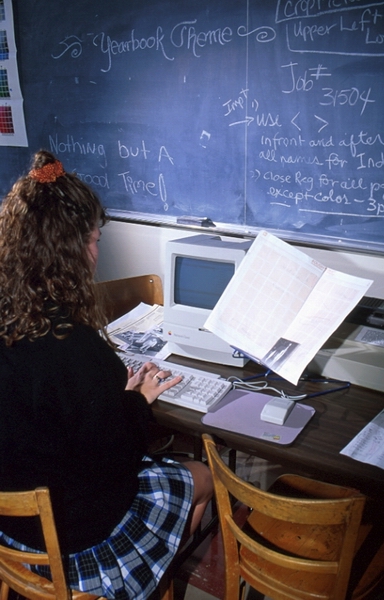 Yearbook Theme
Nothing but A
Good Time!
Upper Left
Job#
31504
Impt 1)
use < >
infront and after
all names for Ind
2) close Reg for all p
except color - 3p